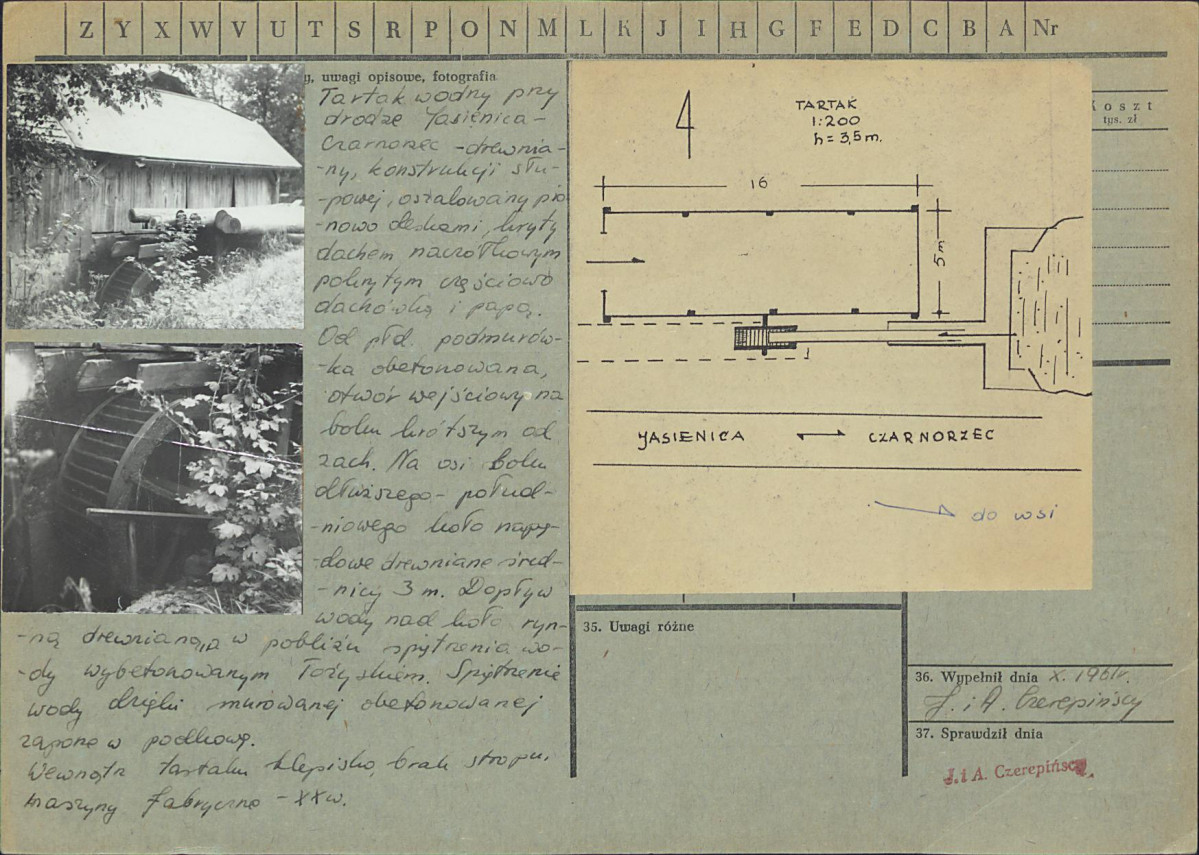 Z Y X W V U T S R P O N M L K J I H G F E D C B A Nr
y, uwagi opisowe, fotografia
Tartak wodny przy
drodze Jasienica -
Czarnorzec - drewnia-
-ny, konstrukcji słu-
-powej, oszalowany pio
-nowo deskami, kryty
dachem naczółkowym
pokrytym częściowo
dachówką i papą.
Od płd. podmurów-
-ka obetonowana,
otwór wejściowy na
boku krótszym od
zach. Na osi boku
dłuższego - połud-
-niowego koło napę-
-dowe drewniane śred-
-nicy 3 m. Dopływ
wody nad koło ryn-
-ną drewnianą, a w pobliżu spiętrzenia wo-
-dy wybetonowanym łożyskiem. Spiętrzenie
wody dzięki murowanej obetonowanej
zaporze w podkowę.
Wewnątrz tartaku klepisko, brak stropu,
maszyny fabryczne - XX w.
TARTAK
1:200
h = 3,5 m.
16
5 m
JASIENICA CZARNORZEC
do wsi
Koszt
tys. zł
35. Uwagi różne
36. Wypełnił dnia X. 1961r.
J. i A. Czerepińscy
37. Sprawdził dnia
J. i A. Czerepińscy